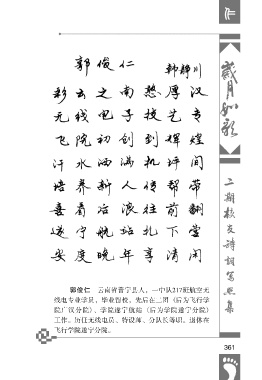 郭俊仁
韩静川
彩云之南憨厚汉
无线电子技艺专
飞院初创到辉煌
汗水洒满机坪间
培养新人传帮带
喜看后浪往前翻
遂宁航站扎下营
安度晚年享清闲
郭俊仁 云南省普宁县人，一中队217班航空无
线电专业学员，毕业留校。先后在二团（后为飞行学
院广汉分院）、学院遂宁航站（后为学院遂宁分院）
工作。历任无线电员、特设师、分队长等职。退休在
飞行学院遂宁分院。
岁月如歌
二期校友诗词写照集
361